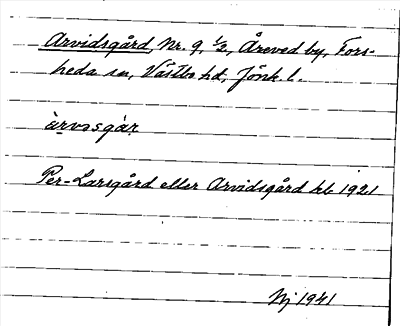 Arvidsgård, Nr. 9, ½, Åreved by, Fors-
heda sn, Västbo hd, Jönk. l.
àrvəsgàr
Per-Larsgård eller Arvidsgård hb 1921
Nj 1941